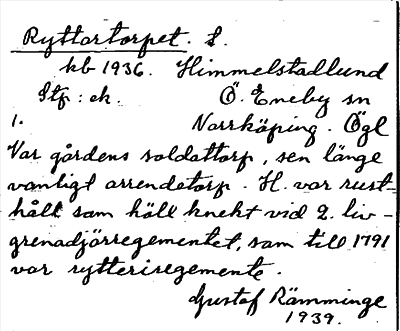 Ryttartorpet. l.
kb 1936. Himmelstadlund
Stf: ek. Ö. Eneby sn
1. Norrköping. Ögl
Var gårdens soldattorp, sen länge
vanligt arrendetorp. H. var rust-
håll som höll knekt vid 2. liv-
grenadjärregementet, som till 1791
var rytteriregemente.
Gustaf Rämminge
1939.